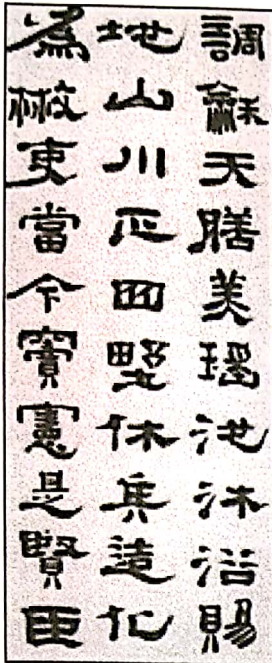 調龢天膳美瑶池沐浴賜
地山川正四野休兵造化
為吏當今竇憲是賢臣